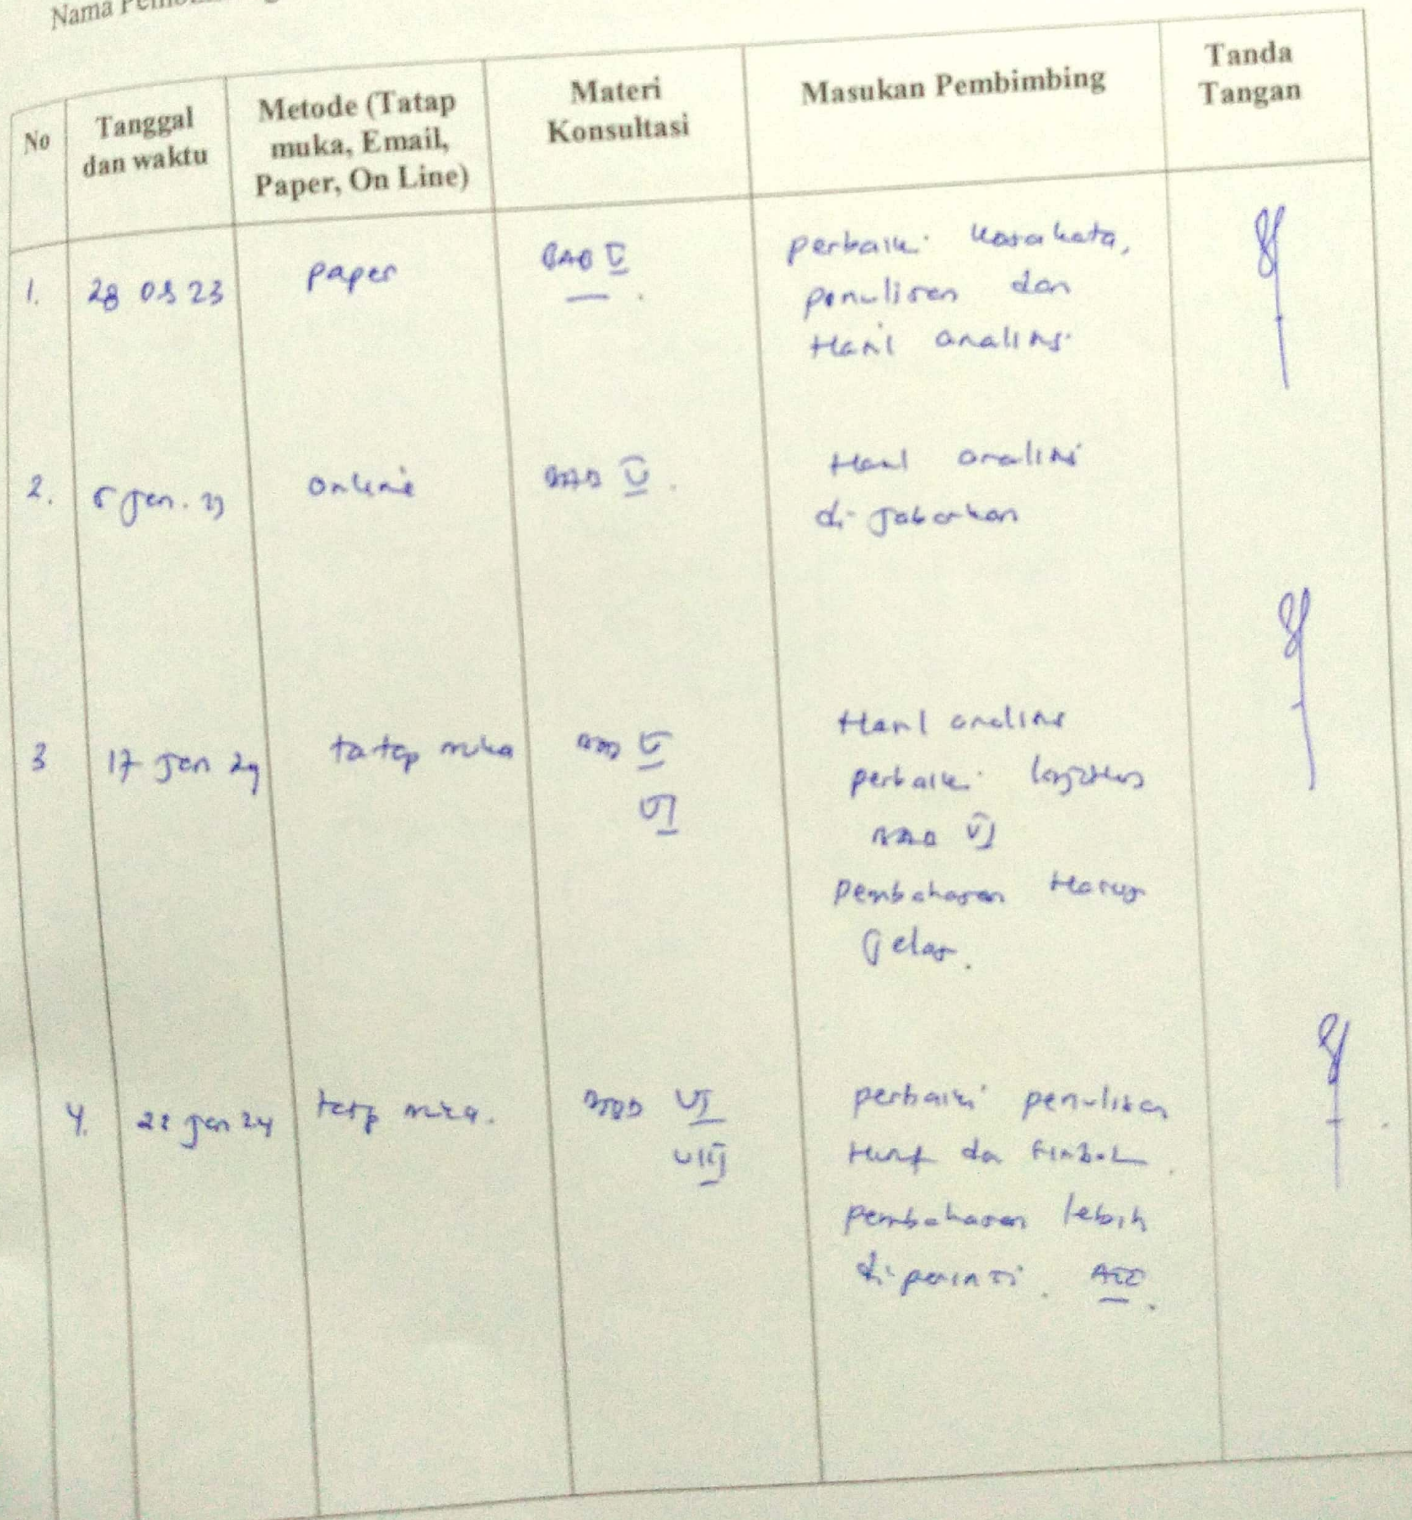 Nama
No
Tanggal
dan waktu
Metode (Tatap
muka, Email,
Paper, On Line)
Materi
Konsultasi
Masukan Pembimbing
Tanda
Tangan
1.
28 08 23
paper
BAB V
perbaiki kosakata,
penulisan dan
Hasil analisis.
2.
Jan.
online
BAB V.
Hasil analisis
di jabarkan
3
17 Jan 24
tatap muka
BAB V
VI
Hasil analisis
perbaiki
BAB VI
pembahasan Harus
Jelas.
4.
22 Jan 24
tatap muka.
BAB VI
VIII
perbaiki penulisan
Huruf dan simbol.
pembahasan lebih
. ACC.